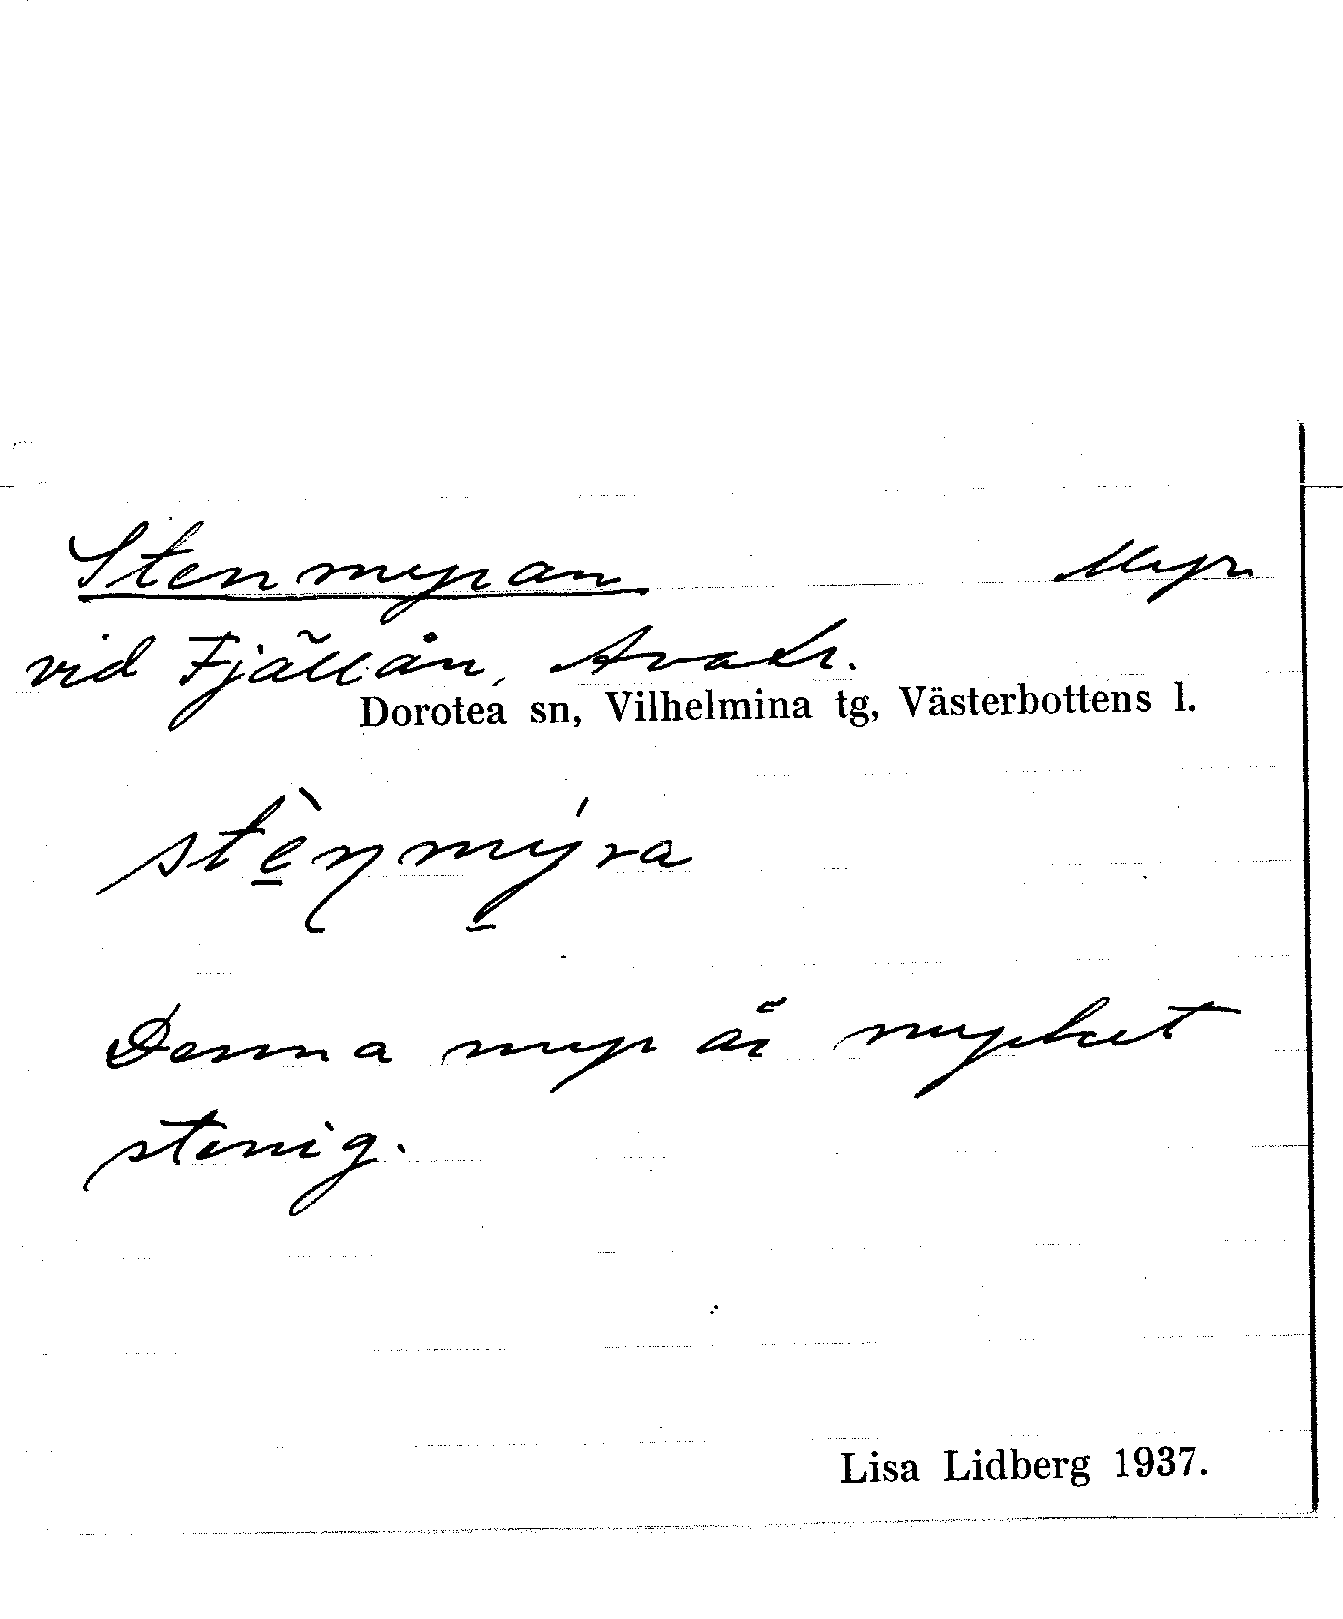 Stenmyran Myr
vid Fjällån, Avask.
Dorotea sn, Vilhelmina tg, Västerbottens l.
stènmýra
Denna myr är mycket
stenig.
Lisa Lidberg 1937.